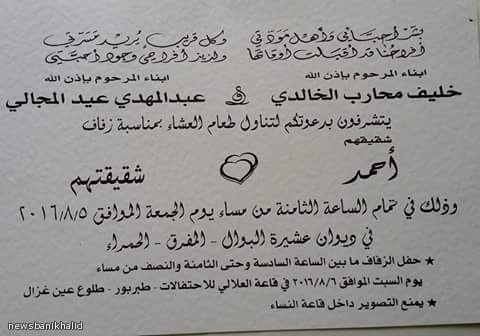 بشر أحبتي وأهل مودتي وكل قريب يريد مسرتي
أفراحنا قد أقبلت أوقاتها ولذيذ أفراحي وجود أحبتي
ابناء المرحوم بإذن الله ابناء المرحوم بإذن الله
خليف محارب الخالدي و عبدالمهدي عيد المجالي
يتشرفون بدعوتكم لتناول طعام العشاء بمناسبة زفاف
شقيقهم
أحمد شقيقتهم
وذلك في تمام الساعة الثامنة من مساء يوم الجمعة الموافق ٢٠١٦/٨/٥
في ديوان عشيرة البوال - المفرق - الحمراء
★ حفل الزفاف ما بين الساعة السادسة وحتى الثامنة والنصف من مساء
يوم السبت الموافق ٢٠١٦/٨/٦ في قاعة العلالي للاحتفالات - طبربور - طلوع عين غزال
★ يمنع التصوير داخل قاعة النساء
newsbanikhalid